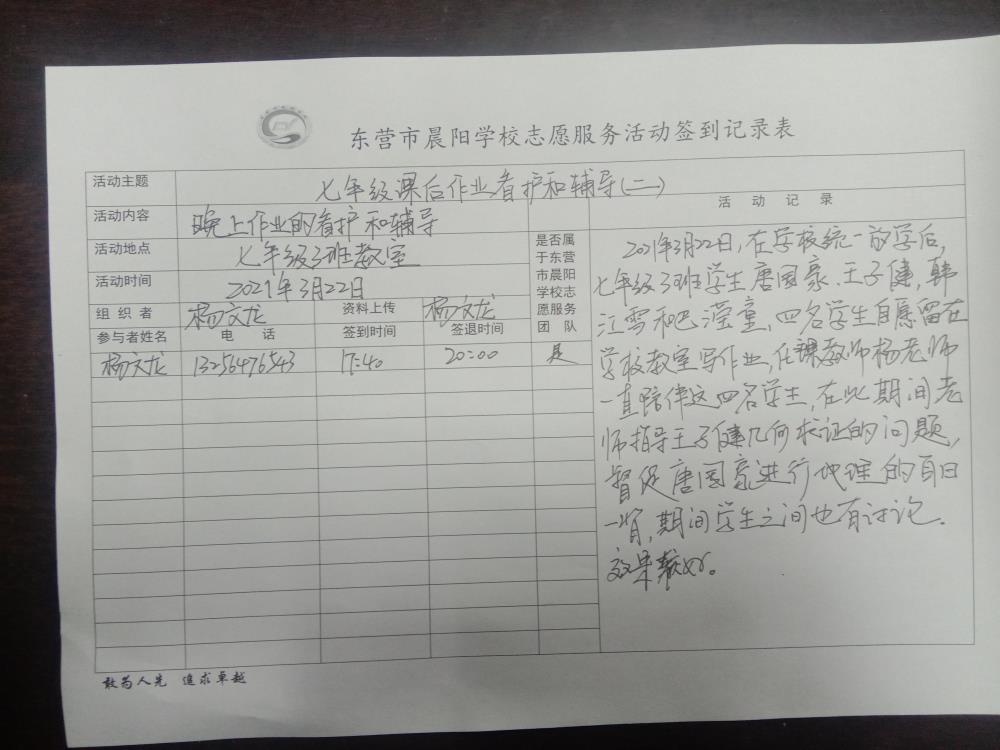 东营市晨阳学校志愿服务活动签到记录表
活动主题 七年级课后作业看护和辅导(二)
活动内容 晚上作业的看护和辅导
活动地点 七年级3班教室
活动时间 2021年3月22日
组织者 杨文龙 资料上传 杨文龙
是否属
于东营
市晨阳
学校志
愿服务
团队
参与者姓名 电话 签到时间 签退时间
杨文龙 13256476543 17:40 20:00 是
活动记录
2021年3月22日,在学校统一放学后,
七年级3班学生唐国豪、王子健,韩
江雪和巴滢童,四名学生自愿留在
学校教室写作业,任课教师杨老师
一直陪伴这四名学生,在此期间老
师指导王子健几何求证的问题,
督促唐国豪进行地理的百日
一背,期间学生之间也有讨论.
效果较好。
敢为人先 追求卓越